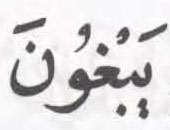 يَبْغُونَ